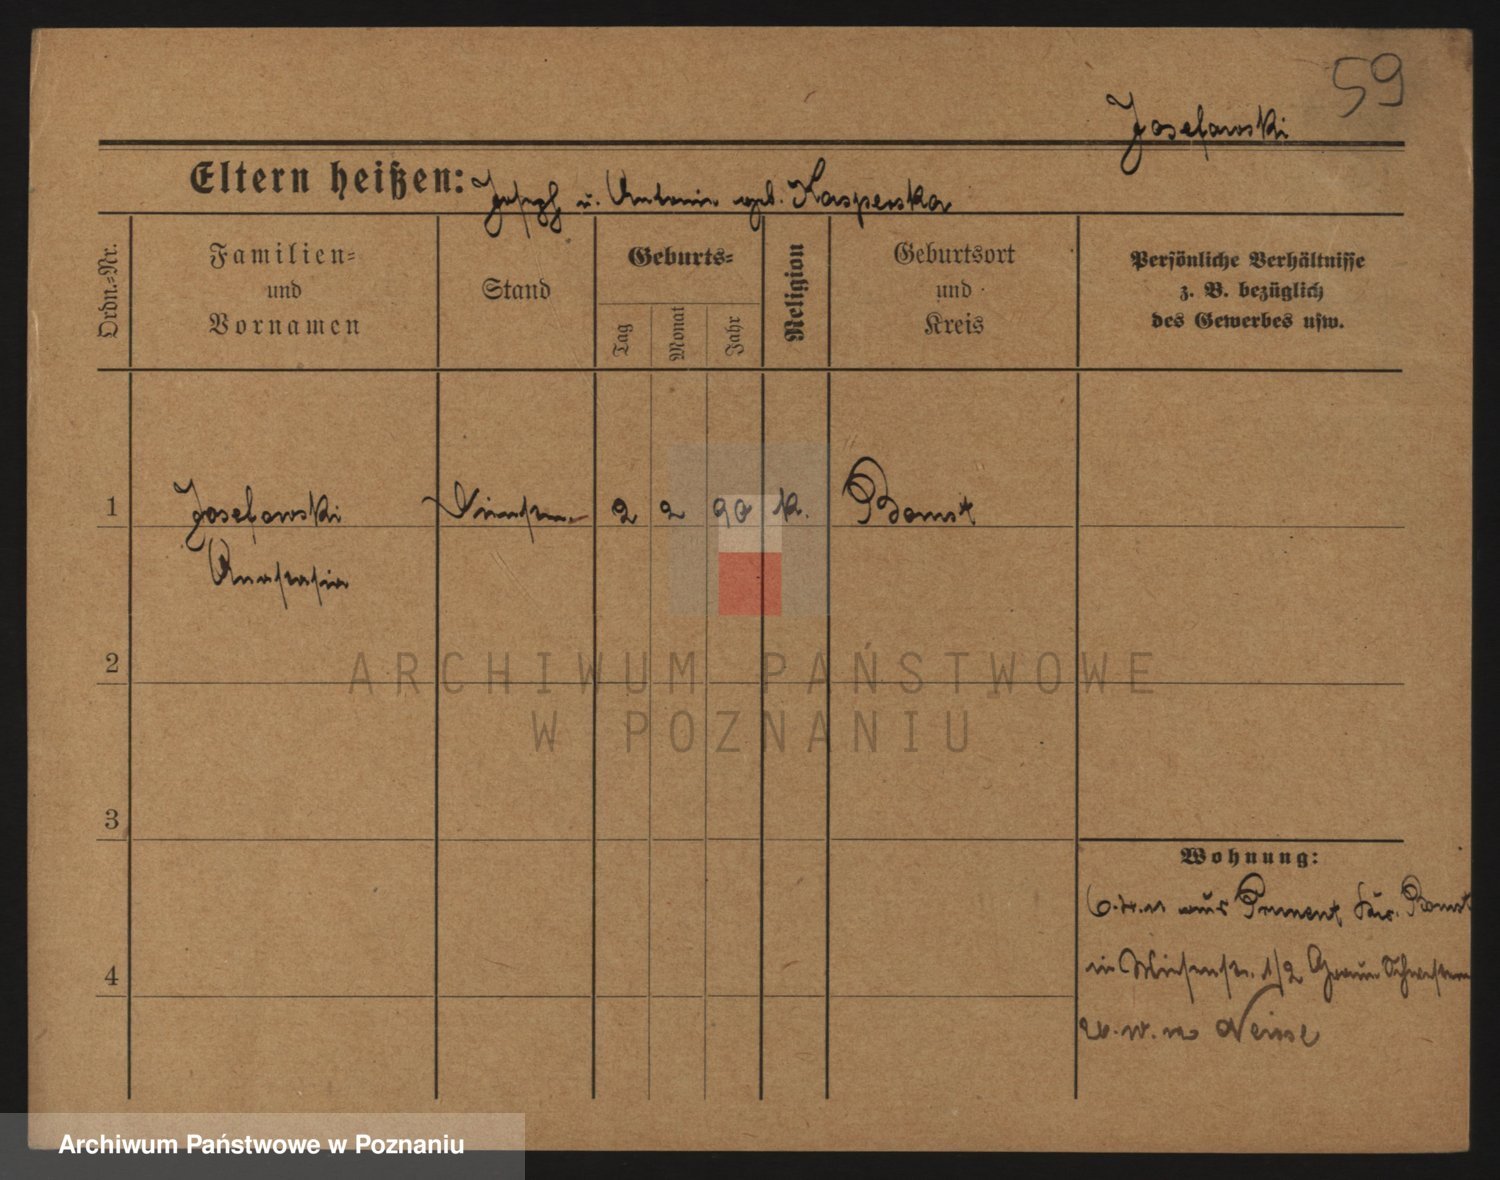 59
Josefowski
Eltern heißen: Joseph u. Antonie geb. Kasperska
Ordn.=Nr.
Familien=
und
Vornamen
Stand
Geburts=
Tag
Monat
Jahr
Religion
Geburtsort
und
Kreis
Persönliche Verhältnisse
z. B. bezüglich
des Gewerbes usw.
1 Josefowski 2 2 90 k. Bomst
Anastasia
2
ARCHIWUM PAŃSTWOWE
W POZNANIU
3
Wohnung:
aus Priment Kr. Bomst
4
in 1/2 Graue Schwestern
Neisse
Archiwum Państwowe w Poznaniu